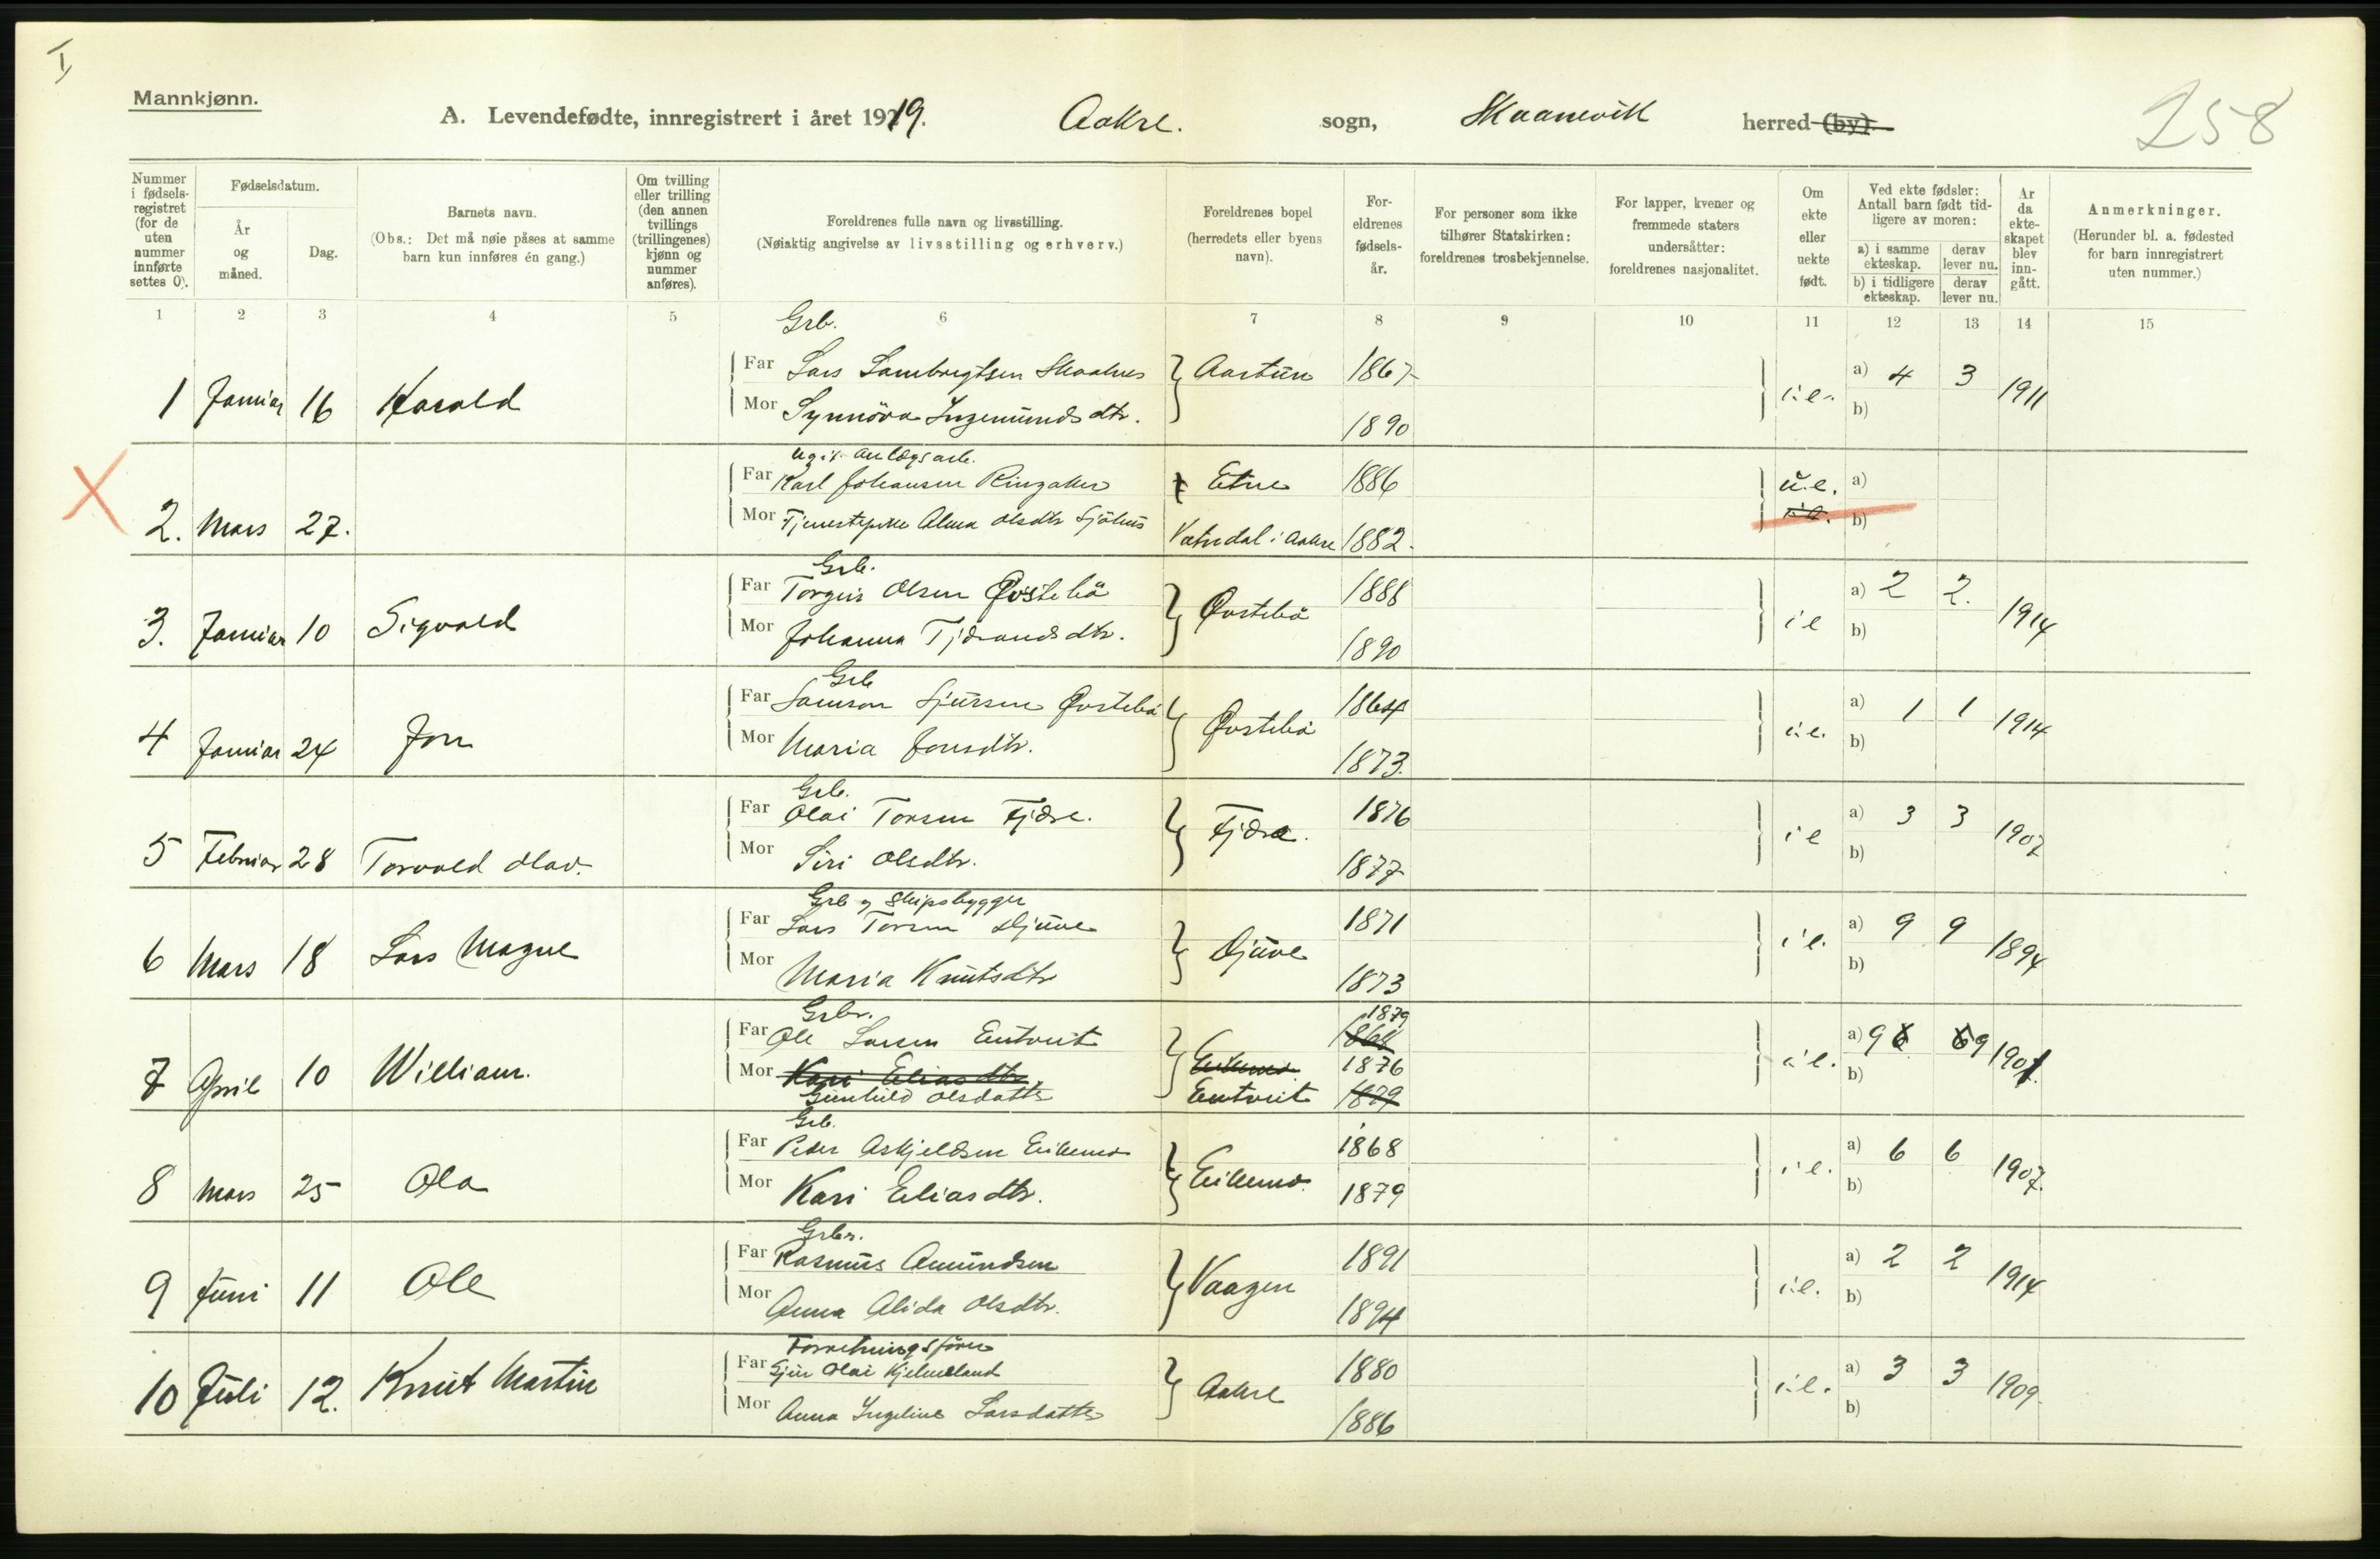 I
Mannkjønn.
A. Levendefødte, innregistrert i året 1919. Aakre. sogn, Skaanevik herred (by).
258
Nummer i fødsels-registret (for de uten nummer innførte settes 0).
Fødselsdatum.
År og måned.
Dag.
Barnets navn.
(Obs.: Det må nøie påses at samme barn kun innføres én gang.)
Om tvilling eller trilling (den annen tvillings (trillingenes) kjønn og nummer anføres).
Foreldrenes fulle navn og livsstilling.
(Nøiaktig angivelse av livsstilling og erhverv.)
Foreldrenes bopel (herredets eller byens navn).
For-eldrenes fødsels-år.
For personer som ikke tilhører Statskirken: foreldrenes trosbekjennelse.
For lapper, kvener og fremmede staters undersåtter: foreldrenes nasjonalitet.
Om ekte eller uekte født.
Ved ekte fødsler: Antall barn født tid-ligere av moren:
a) i samme ekteskap. derav lever nu.
b) i tidligere ekteskap. derav lever nu.
År da ekte-skapet blev inn-gått.
Anmerkninger.
(Herunder bl. a. fødested for barn innregistrert uten nummer.)
1 2 3 4 5 6 7 8 9 10 11 12 13 14 15
Grb.
1 Januar 16 Harald Far Lars Lambregtsen Skaalnes Aartun 1867 i.e. a) 4 3 1911
Mor Synnöva Ingemundsdtr. 1890 b)
X
ugift anlægsarb.
2. Mars 27. Far Karl Johansen Ringaker Etne 1886 u.e. a)
Mor Tjenestepike Alma Olsdtr Sjöhus Vatndal i Aakre 1882. b)
Grb.
3. Januar 10 Sigvald Far Torgeis Olsen Østebö Østebö 1888 i e a) 2 2. 1914
Mor Johanna Tjerandsdtr. 1890 b)
Grb
4 Januar 24 Jon Far Samson Sjursen Østebö Østebö 1864 i.e. a) 1 1 1914
Mor Maria Jonsdtr. 1873. b)
Grb.
5 Februar 28 Torvald Olav. Far Olai Torsen Fjære. Fjære. 1876 i e a) 3 3 1907
Mor Siri Olsdtr. 1877 b)
Grb og Skipsbygger
6 Mars 18 Lars Magne Far Lars Torsen Djuve Djuve 1871 i.e. a) 9 9 1894
Mor Maria Knutsdtr 1873 b)
Grbr. 1879
7 April 10 William. Far Ole Larsen Entveit Eikemo 1868 i.e. a) 9 6 6 9 1901.
Mor Kari Eliasdtr. 1876 b)
Gunhild Olsdatter Entveit 1879
Grb.
8 Mars 25 Ola Far Peder Askjeldsen Eikemo Eikemo. 1868 i.e. a) 6 6 1907.
Mor Kari Eliasdtr. 1879 b)
Grbr.
9 Juni 11 Ole Far Rasmus Amundsen Vaagen 1891 i.e. a) 2 2 1914
Mor Anna Alida Olsdtr. 1894 b)
Forretningsförer
10 Juli 12. Knut Martin Far Gjer Olai Kjelmeland Aakre 1880 i.e. a) 3 3 1909.
Mor Anna Ingeline Larsdatter 1886 b)